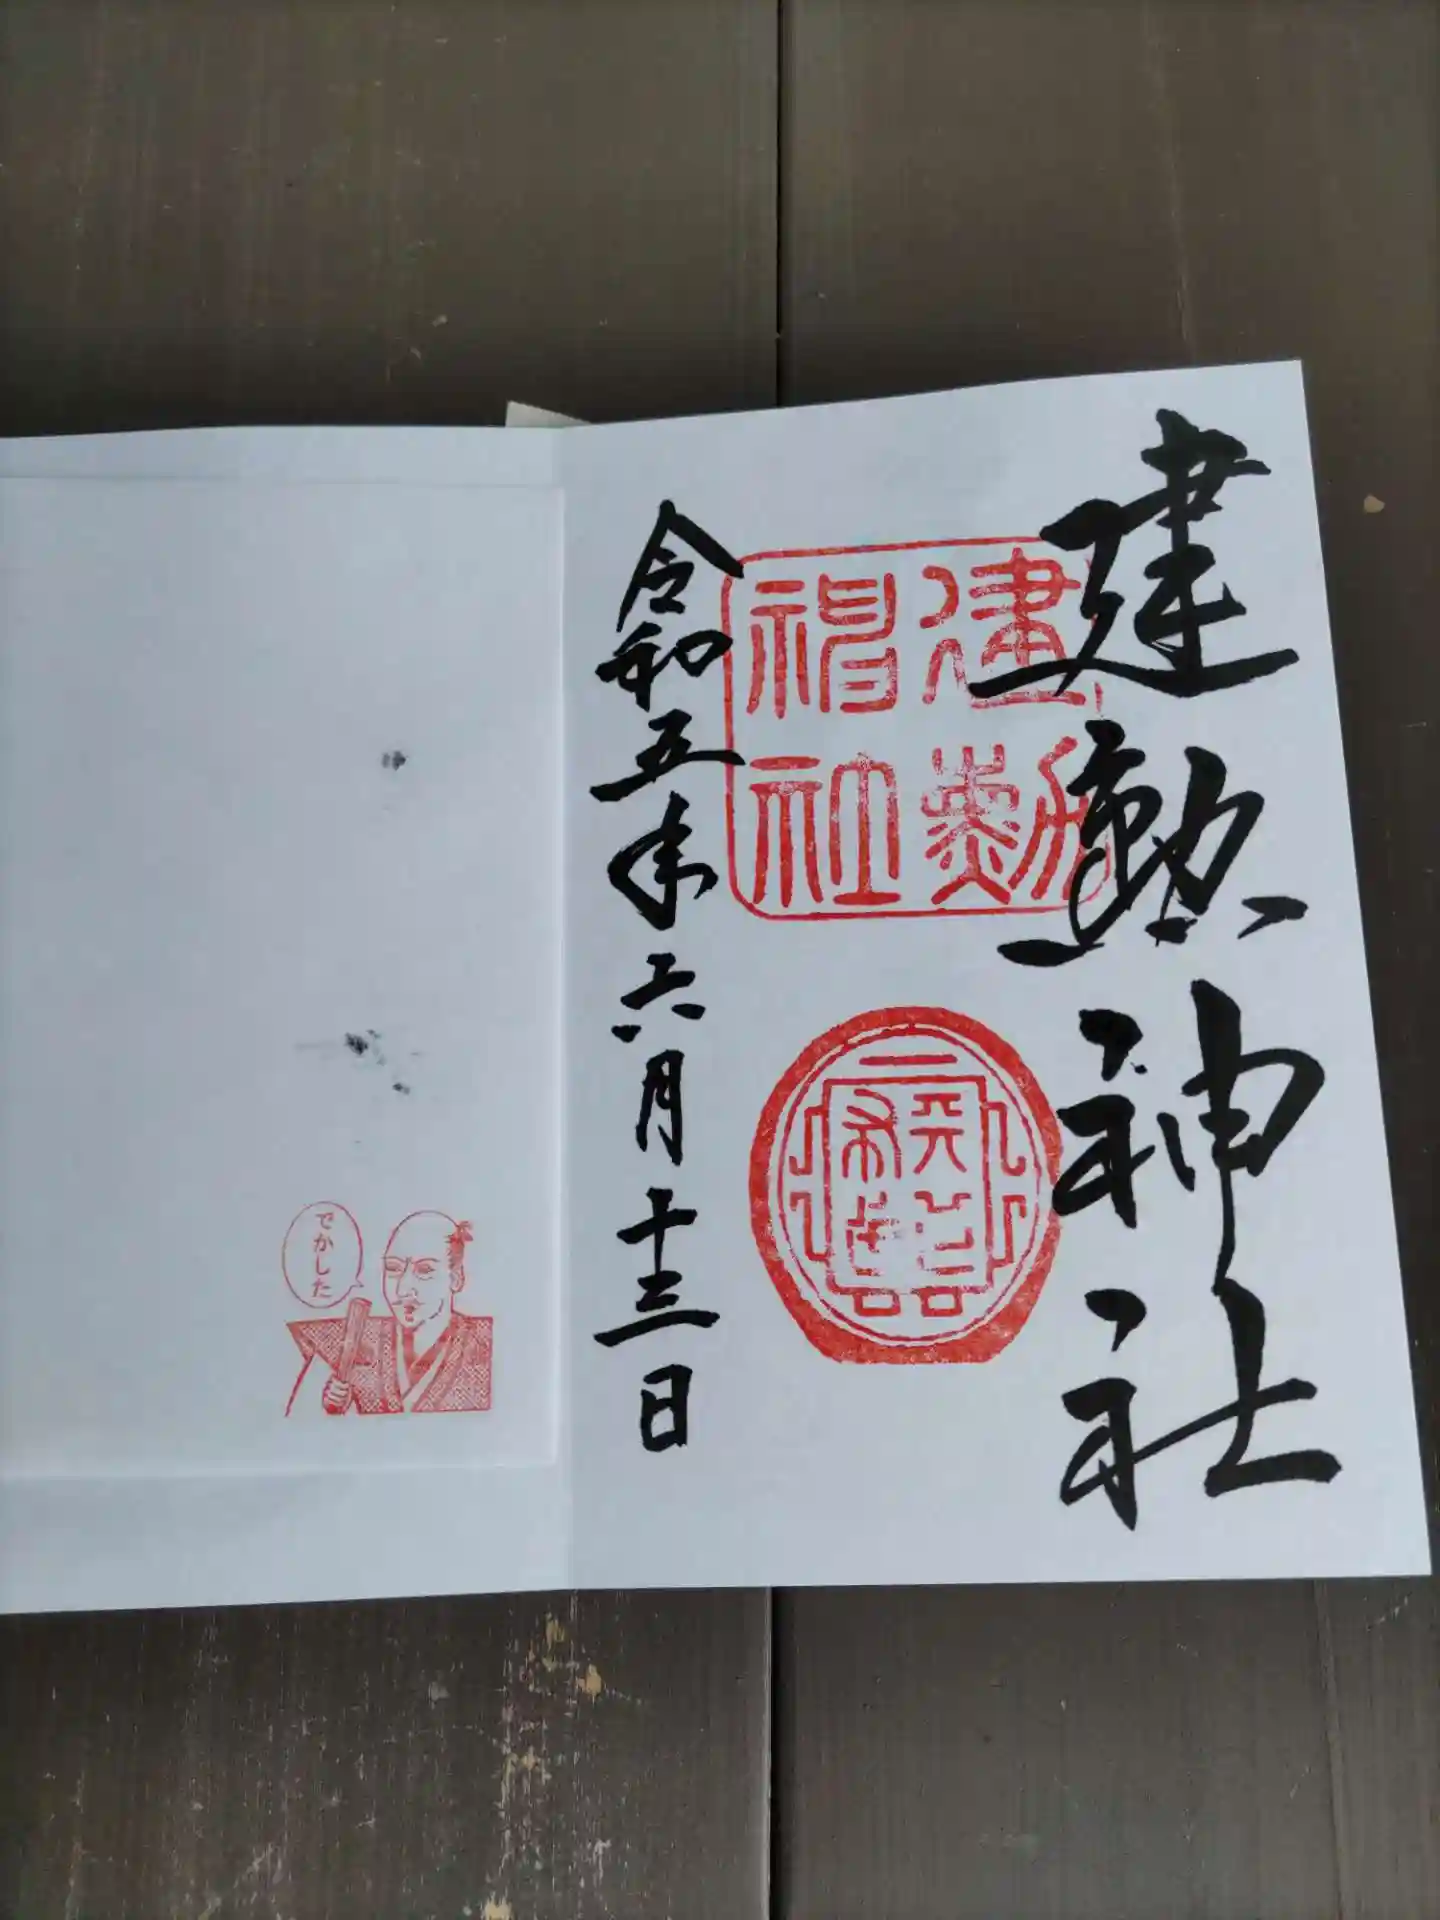 建勲神社
建勲
神社
令和五年六月十三日
でかした